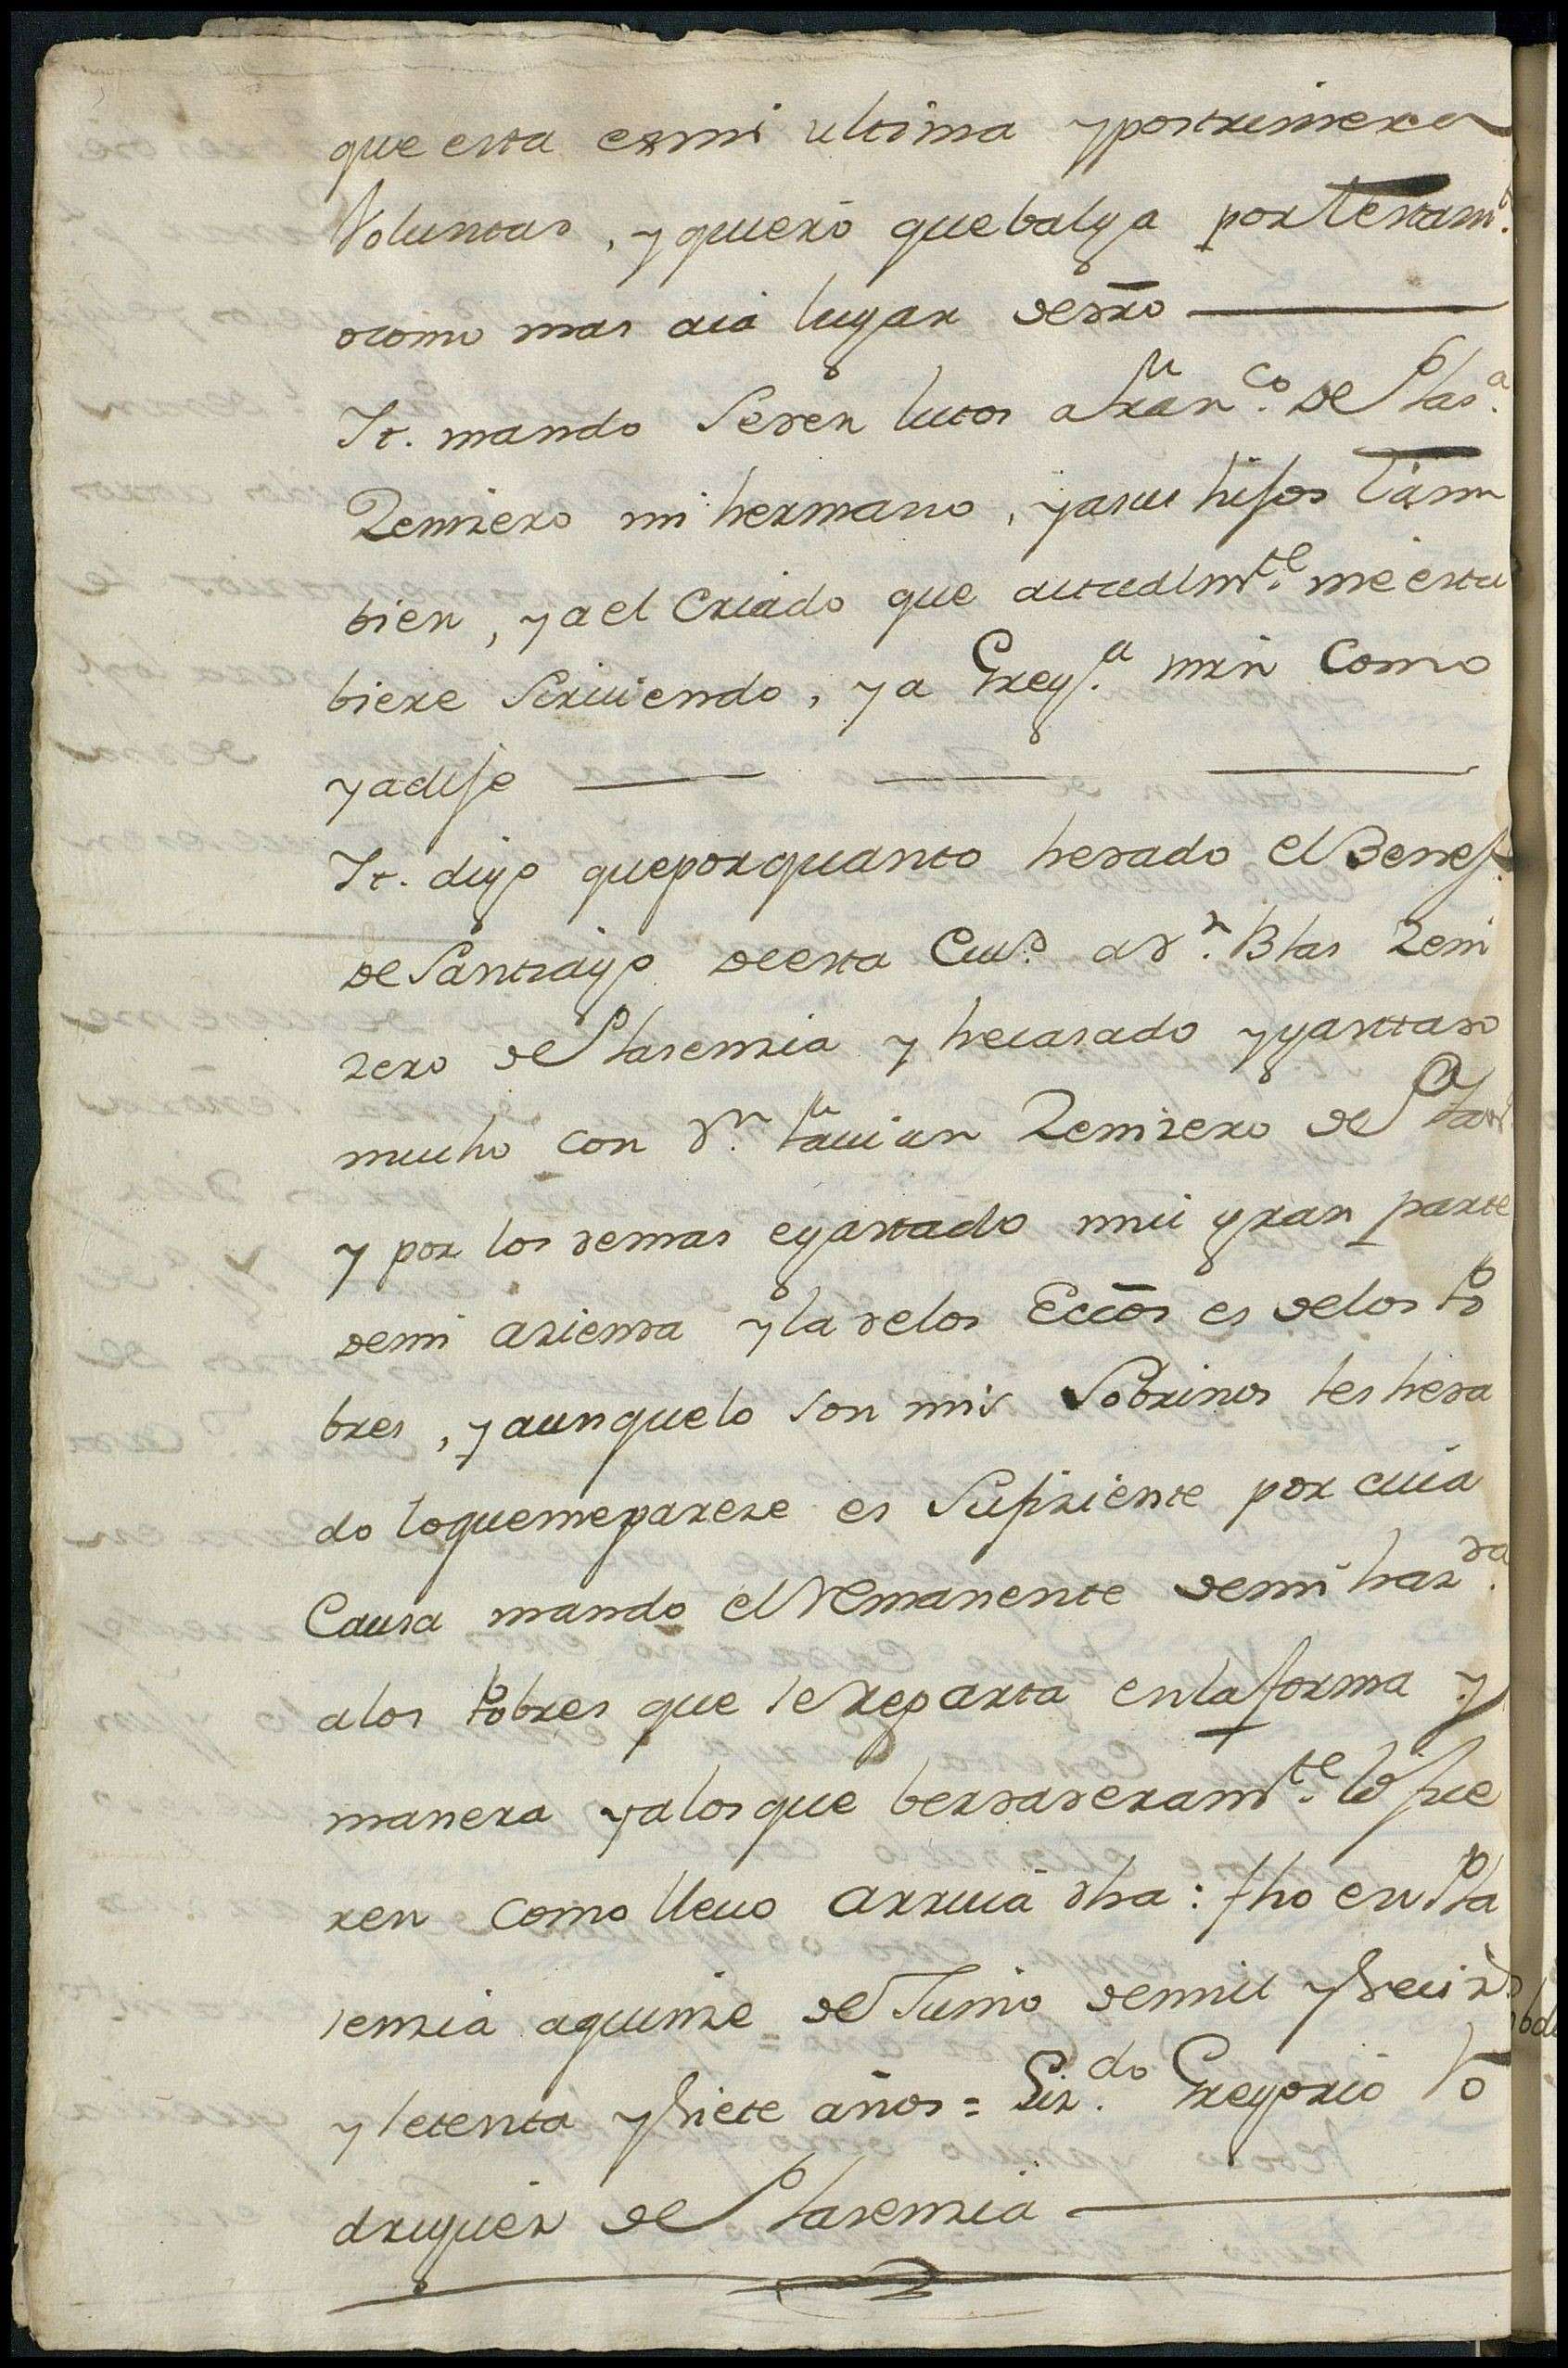 que esta es mi ultima y postrimera
Voluntad, y quiero que balga por testam.to
o como mas aia lugar de dro
It. mando se den lutos a Fran.co de Plas.a
Zenizero mi hermano, y a sus hijos tam
bien, y a el Criado que actualm.te me estu
biere siruiendo, y a Greg.a mrn como
ya dije
It. digo que por quanto he dado el Benef.
de Santiago de esta Ciu.d a D.n Blas Zeni
zero de Plasenzia y he casado y gastado
mucho con D.n Fauian Zenizero de Plas.a
y por los demas e gastado mui gran parte
de mi azienda y la de los Eccos es de los Po
bres, y aunque lo son mis Sobrinos les he da
do lo que me pareze es Sufiziente por cuia
Causa mando el Remanente de mi haz.da
a los Pobres que se Reparta en la forma y
manera y a los que berdaderam.te lo fue
ren como lleuo arriua dha: fho en Pla
senzia a quinze de Junio de mil y Seiz.s
y setenta y Siete años = Liz.do Gregorio Ro
driguez de Plasenzia